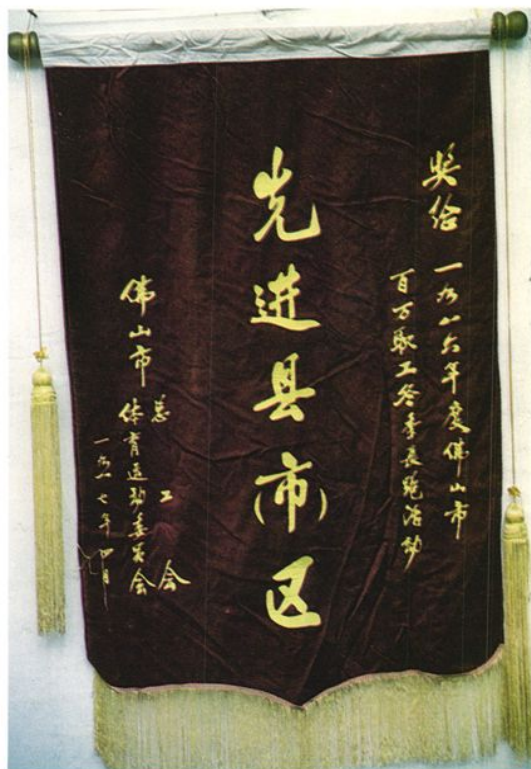 奖给
一九八六年度佛山市
百万职工冬季长跑活动
先进县(市)区
佛山市总工会
体育运动委员会
一九八七年四月